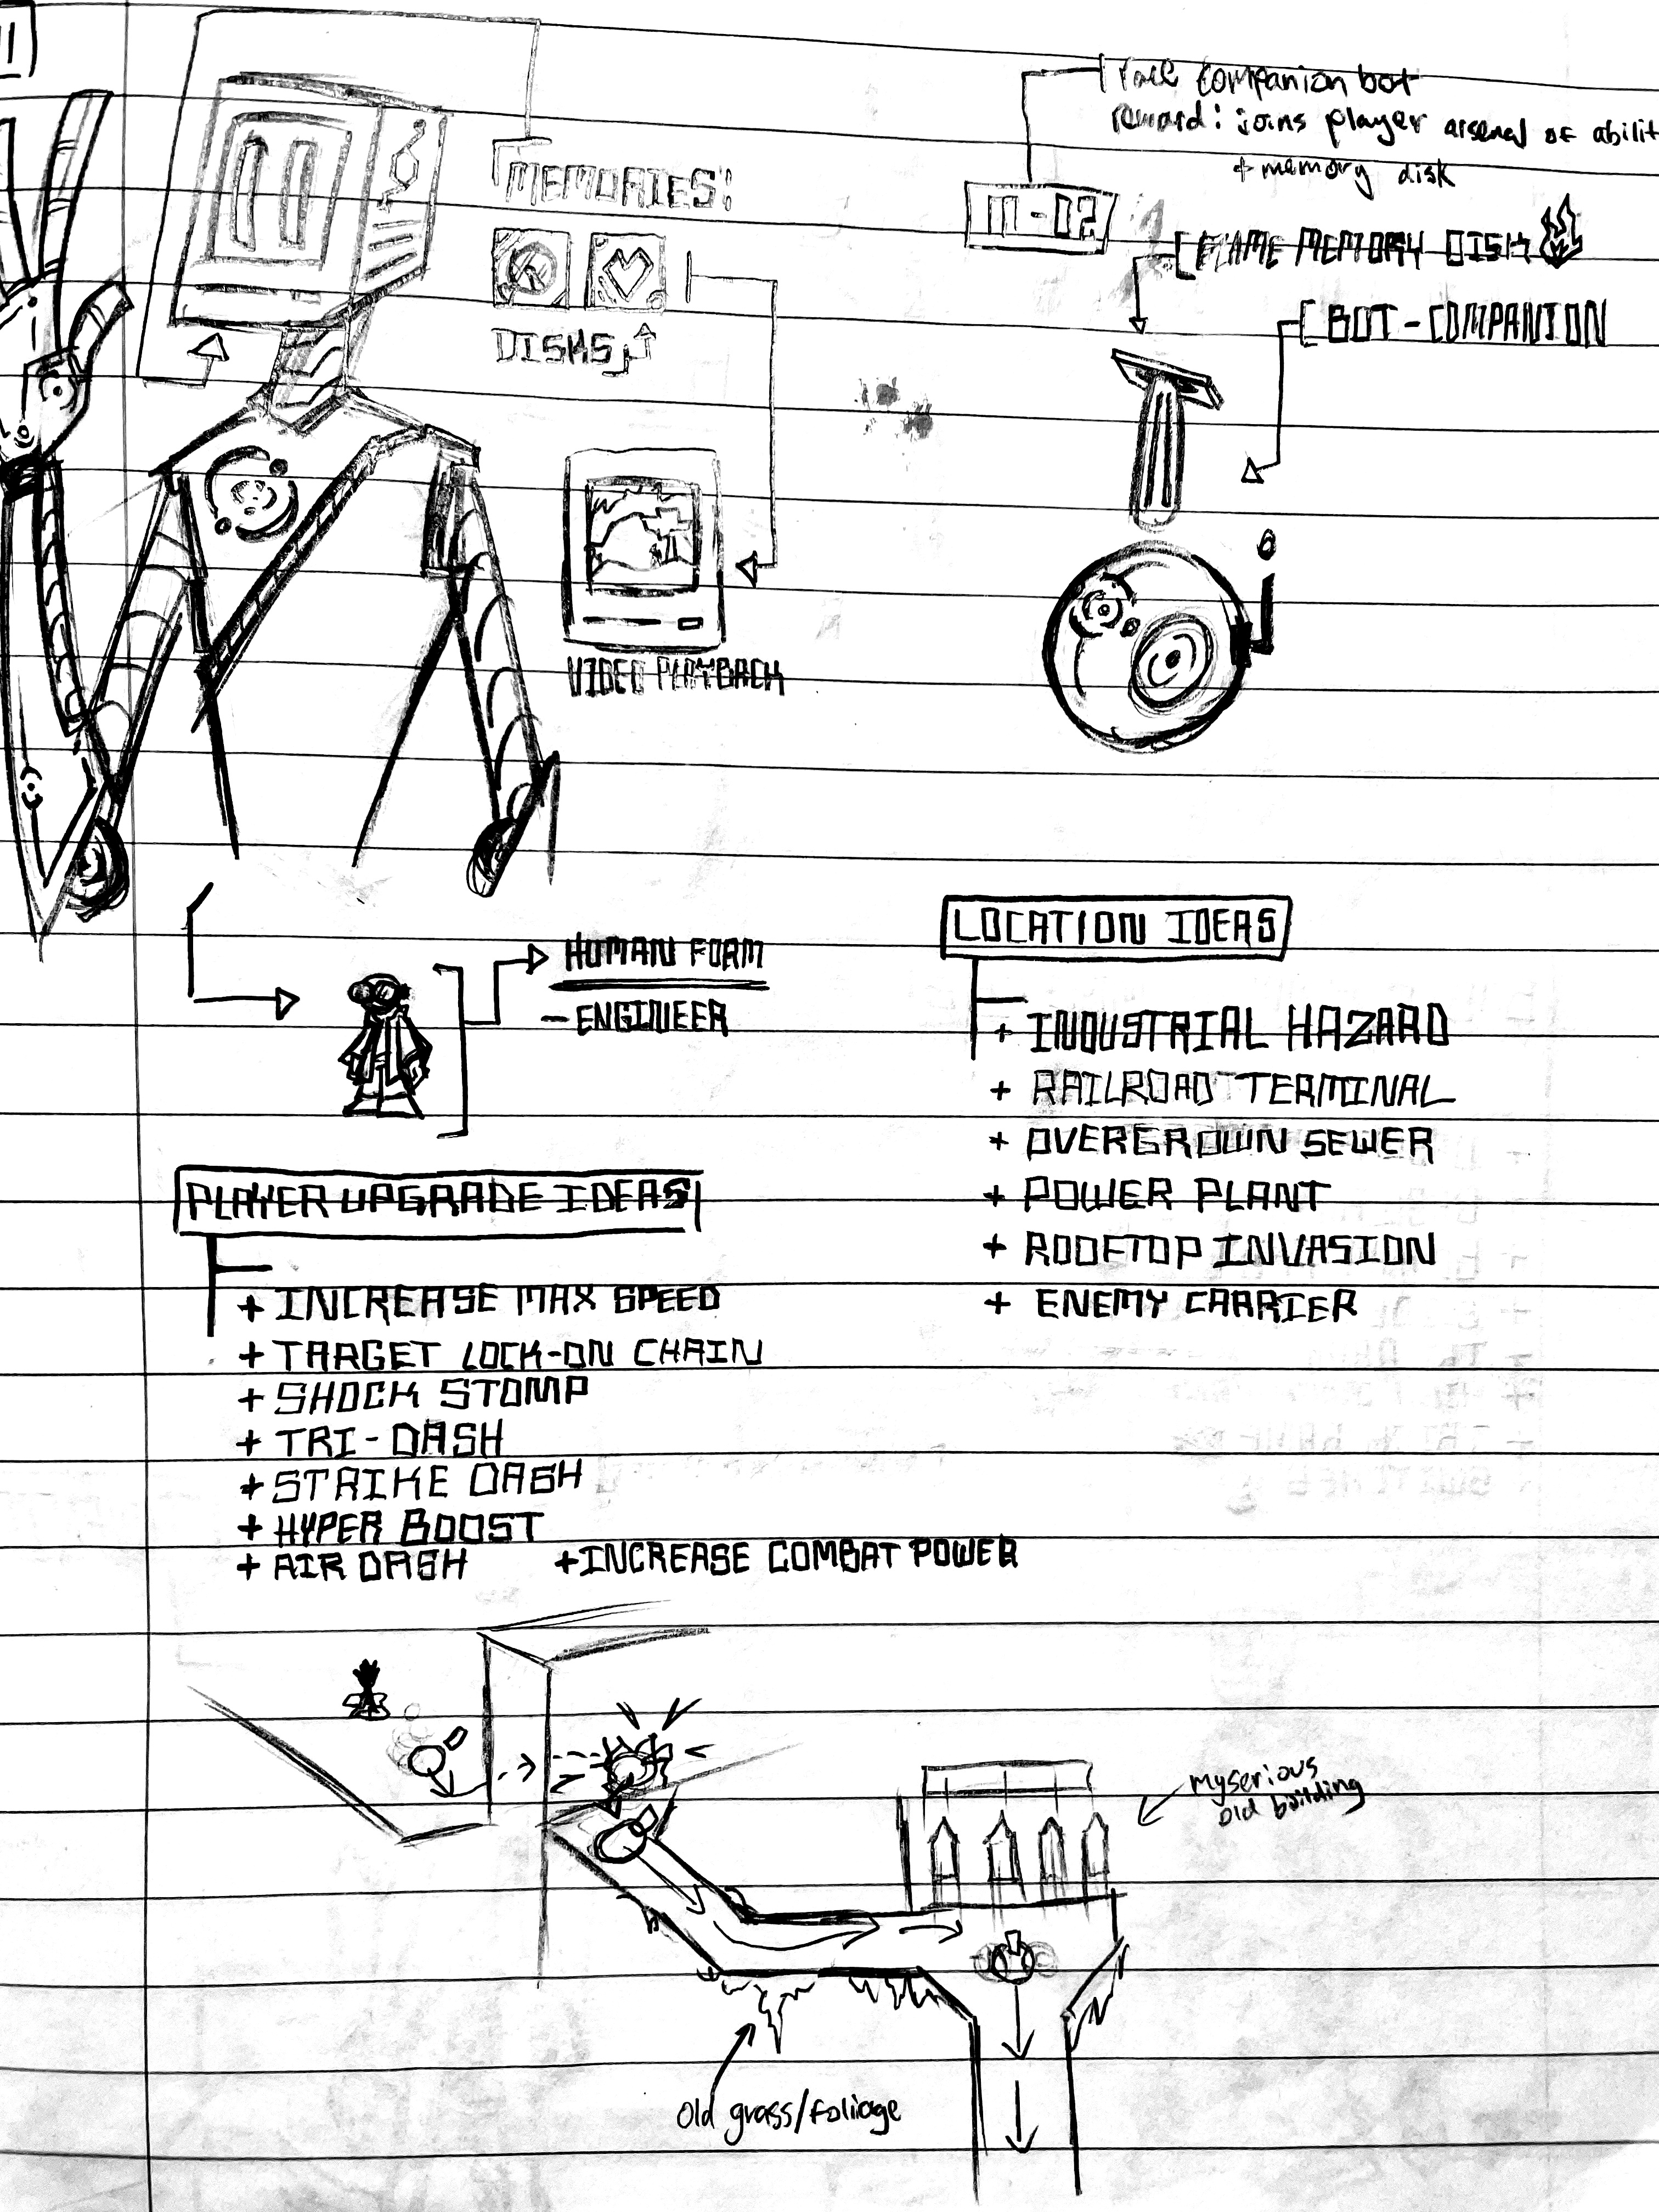 companion bot
reward: joins player arsenal of abilit
+ memory disk
M-02
FLAME MEMORY DISK
BOT-COMPANION
MEMORIES:
DISKS
VIDEO PLAYBACK
HUMAN FORM
- ENGINEER
LOCATION IDEAS
+ INDUSTRIAL HAZARD
+ RAILROAD TERMINAL
+ OVERGROWN SEWER
+ POWER PLANT
+ ROOFTOP INVASION
+ ENEMY CARRIER
PLAYER UPGRADE IDEAS
+ INCREASE MAX SPEED
+ TARGET LOCK-ON CHAIN
+ SHOCK STOMP
+ TRI-DASH
+ STRIKE DASH
+ HYPER BOOST
+ AIR DASH +INCREASE COMBAT POWER
Myserious
old building
Old grass/foliage